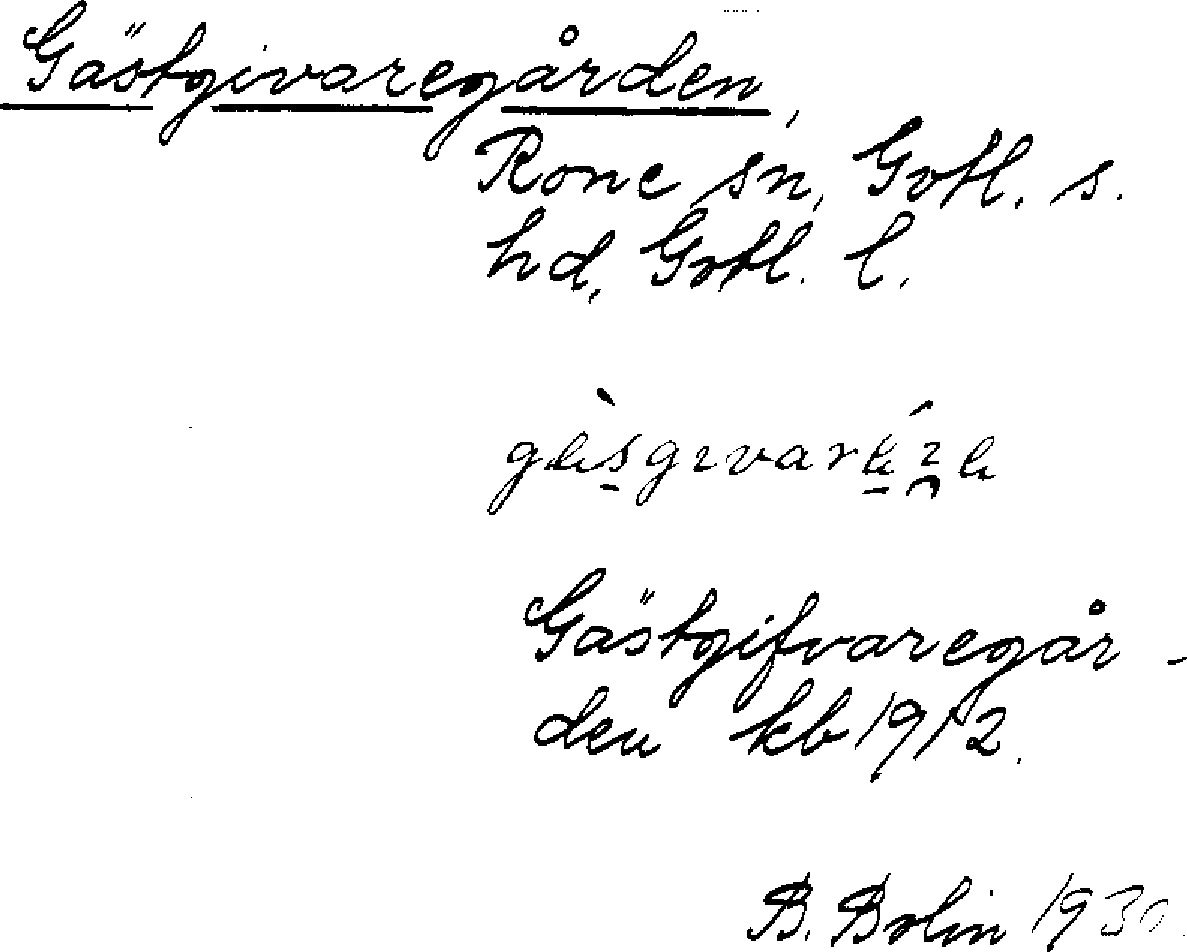 Gästgivaregården,
Rone sn, Gotl. s.
hd, Gotl. l.
Gästgifvaregår-
den kb 1912.
B. Bolin 1930.